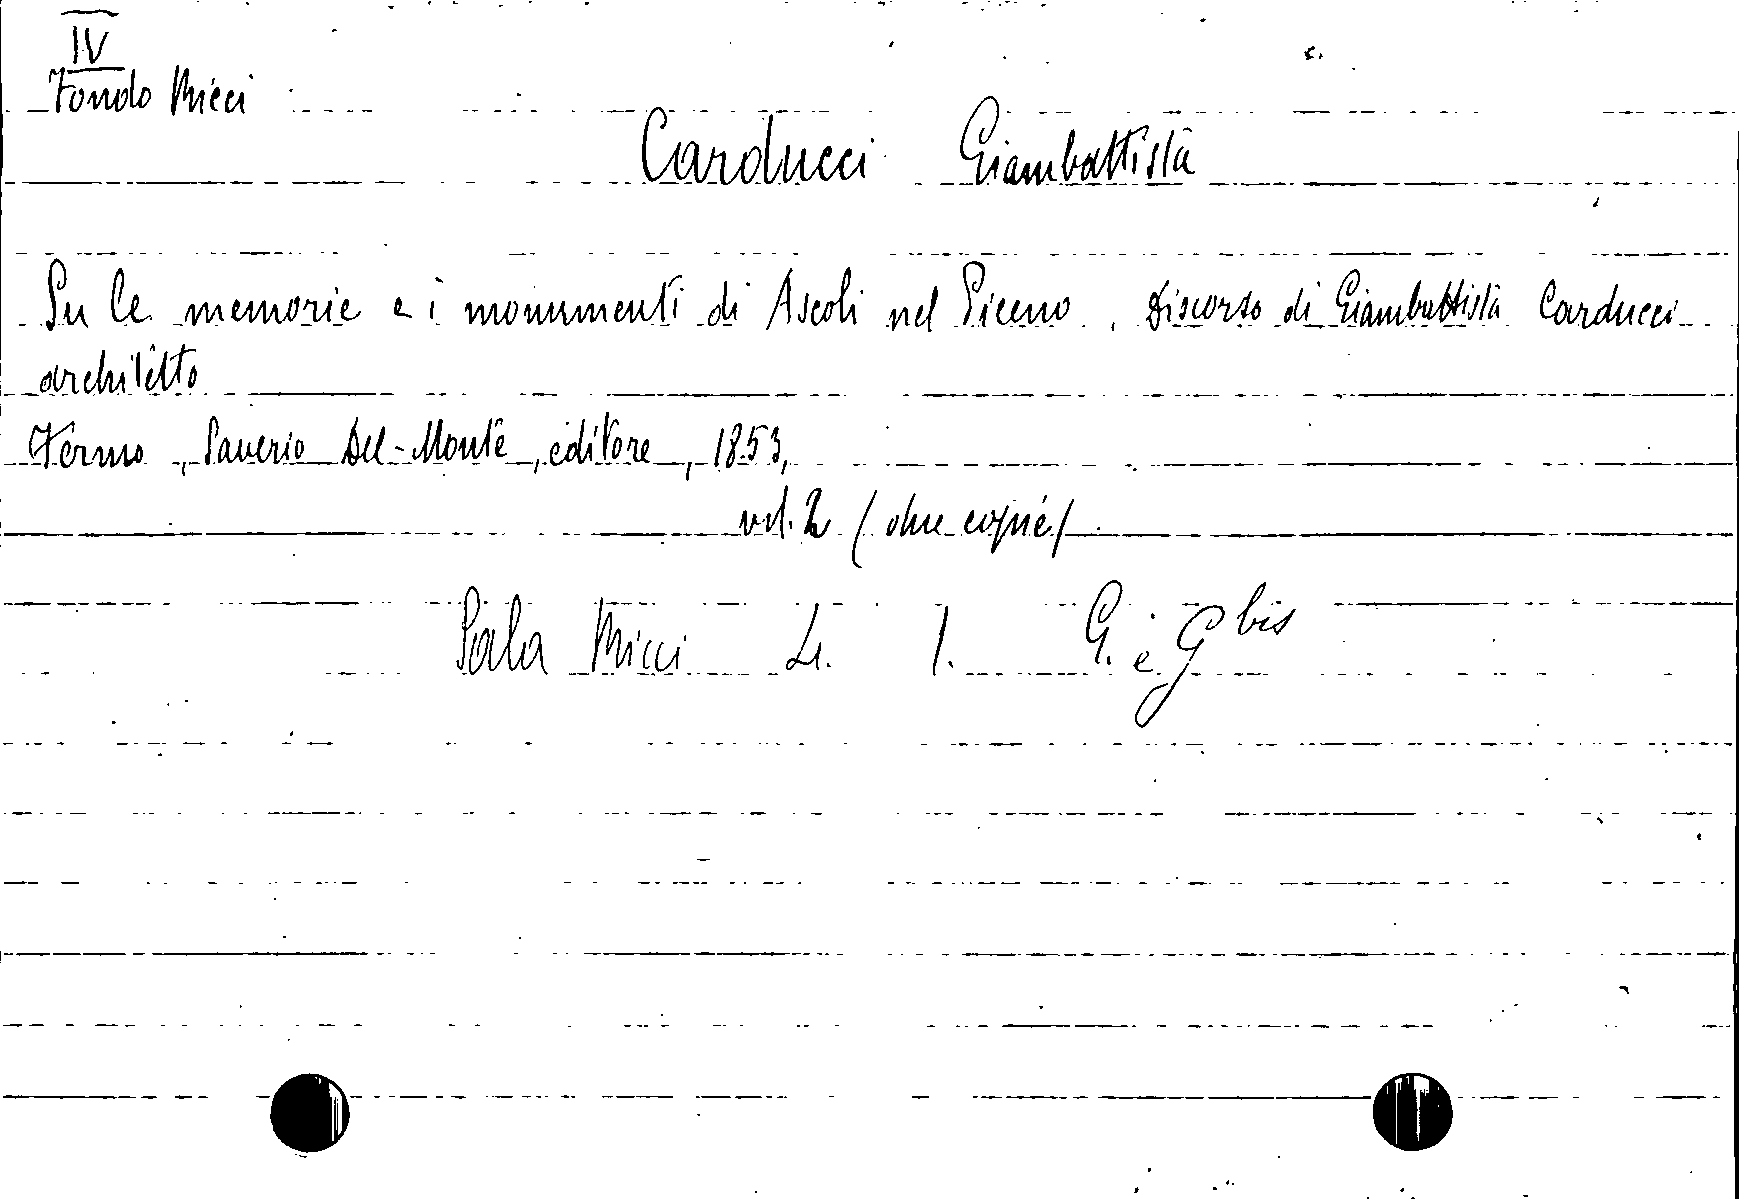 IV
Fondo Ricci
Carducci Giambattista
Su le memorie e i monumenti di Ascoli nel Piceno. Discorso di Giambattista Carducci
architetto
Fermo, Saverio Del-Monte, editore, 1853,
vol. 2 (due copie)
Sala Ricci L. 1. G. e G bis